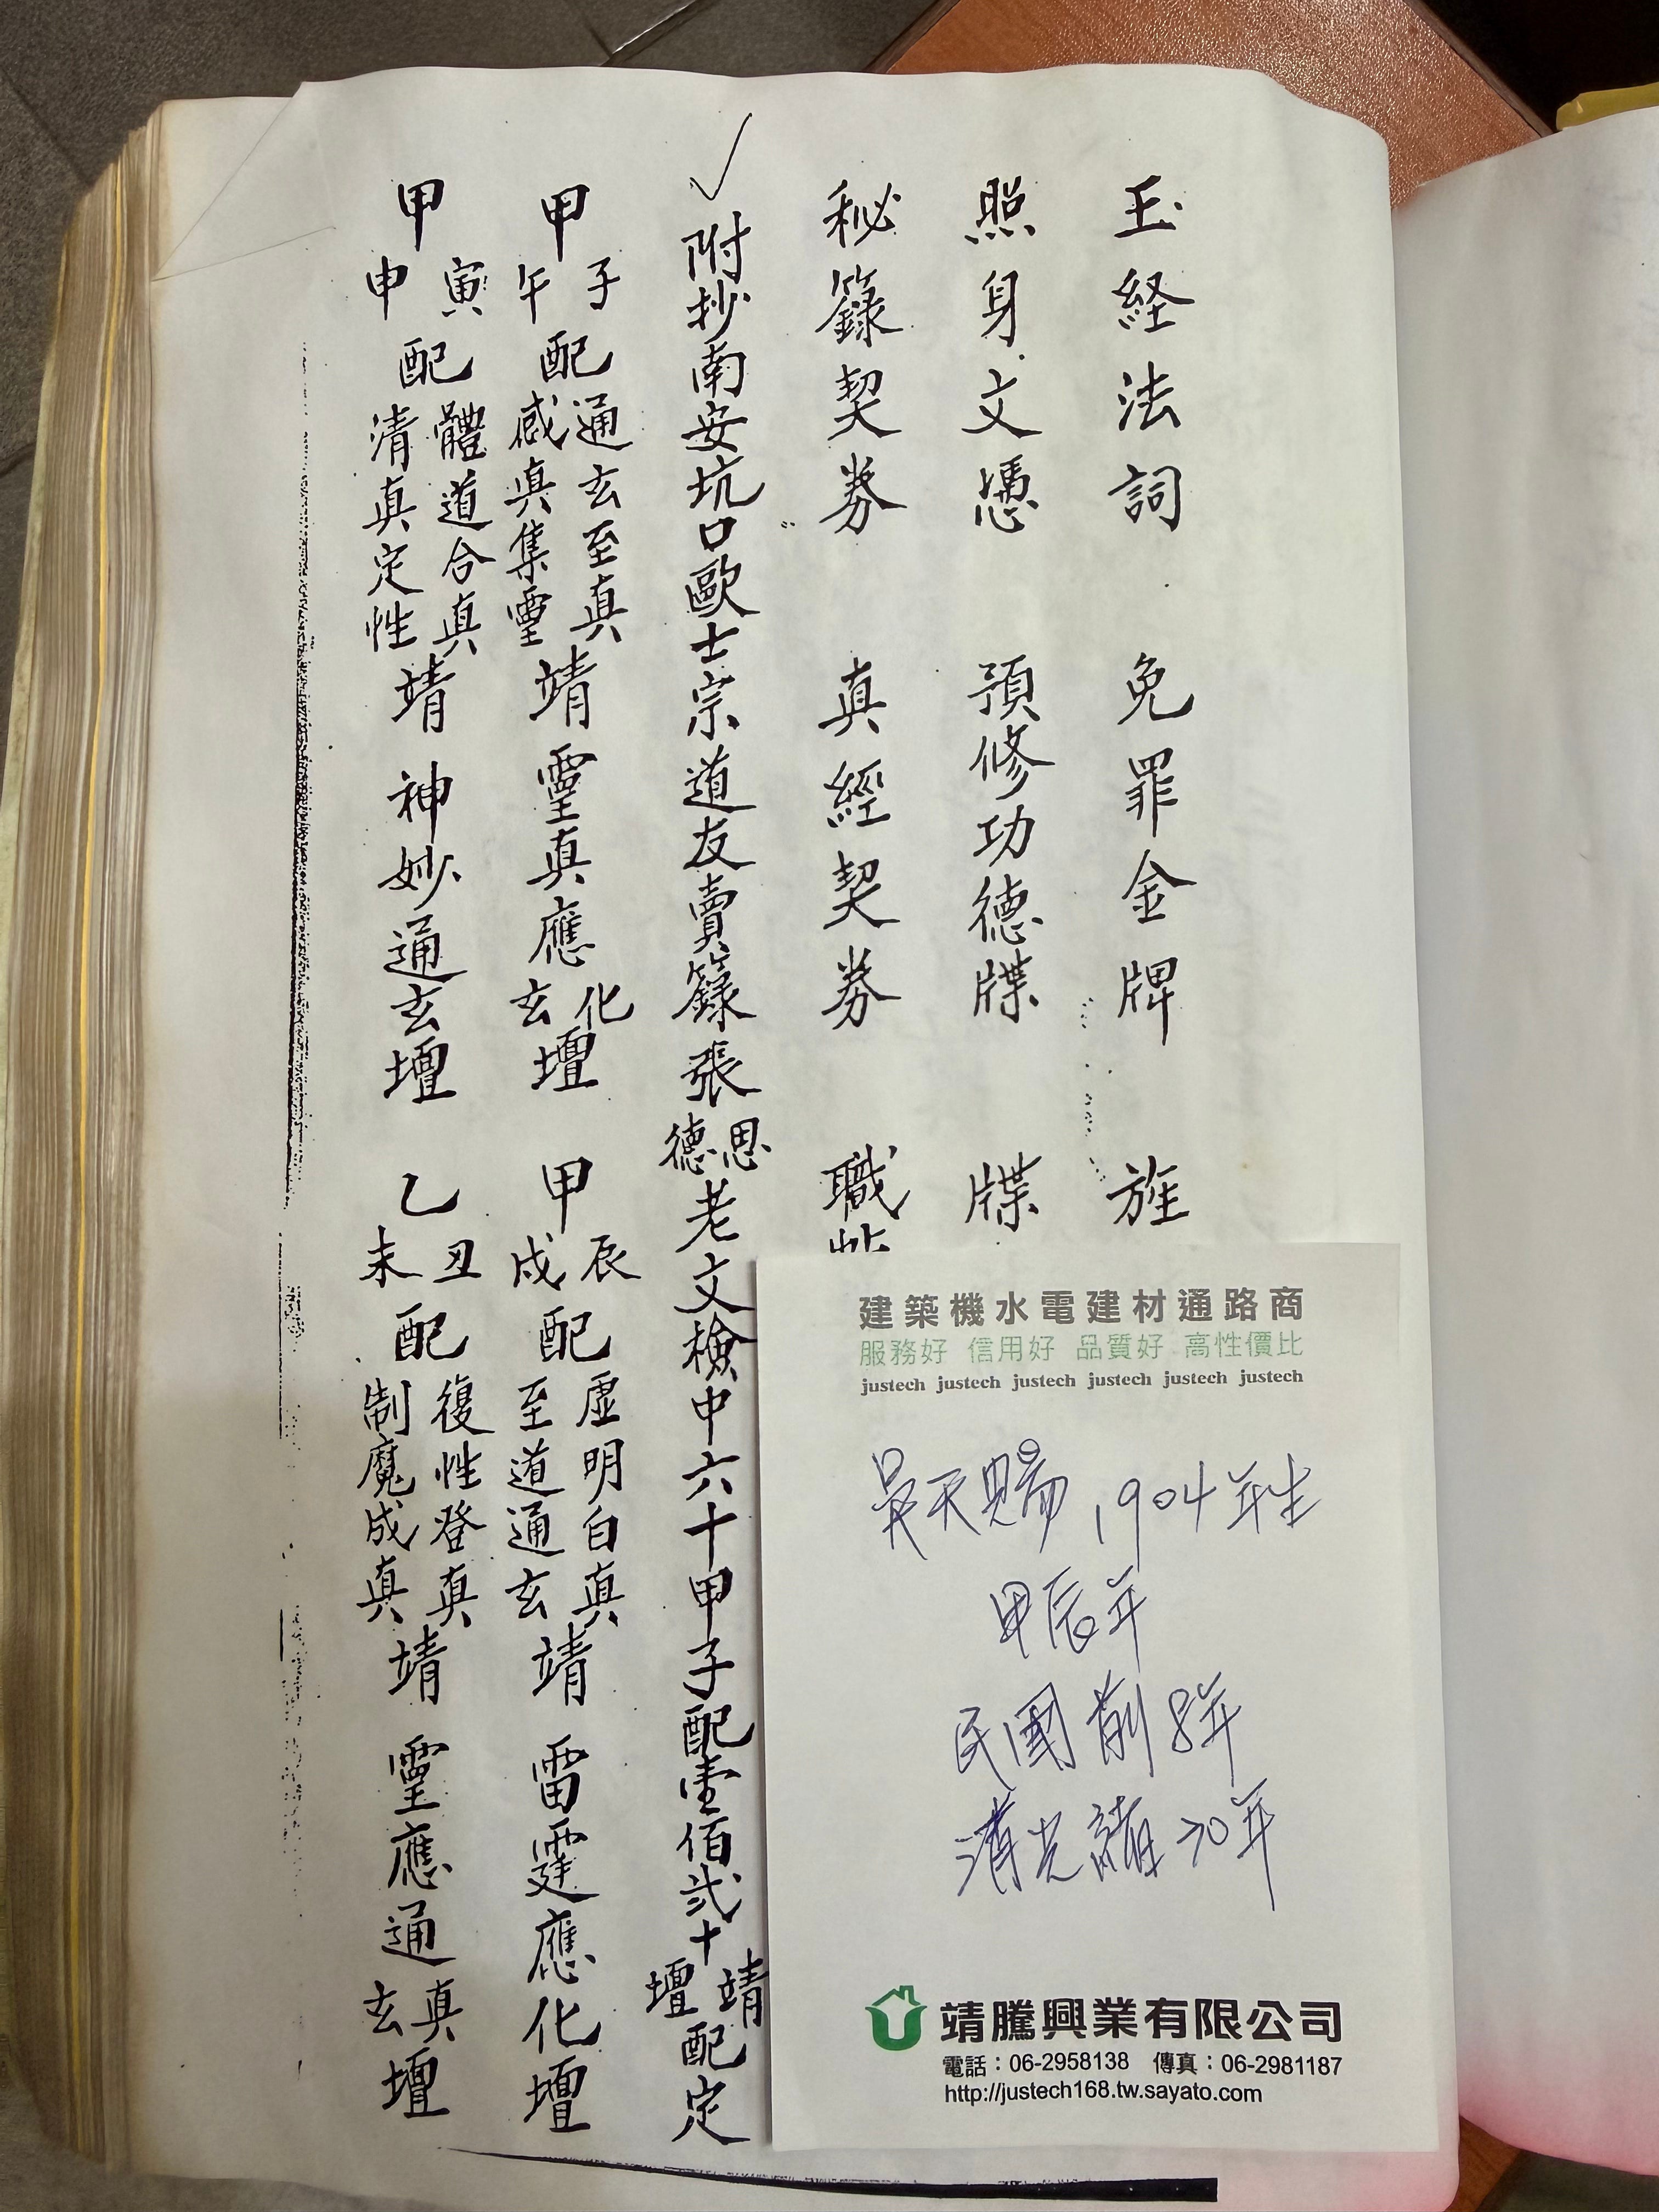 玉経法詞 免罪金牌 旌
照身文憑 預修功德牒 牒
秘籙契券 真經契券 職
附抄南安坑口歐士宗道友賣籙張思德老文檢中六十甲子配壹佰弍十靖壇配定
甲子午配通玄至真感真集靈靖 靈真應化玄壇 甲辰戌配虛明白真至道通玄靖 雷霆應化壇
甲寅申配體道合真清真定性靖 神妙通玄壇 乙丑未配復性登真制魔成真靖 靈應通真玄壇
建築機水電建材通路商
服務好 信用好 品質好 高性價比
justech justech justech justech justech justech
吳天賜,1904年生
甲辰年
民國前8年
清光緒30年
靖騰興業有限公司
電話：06-2958138 傳真：06-2981187
http://justech168.tw.sayato.com